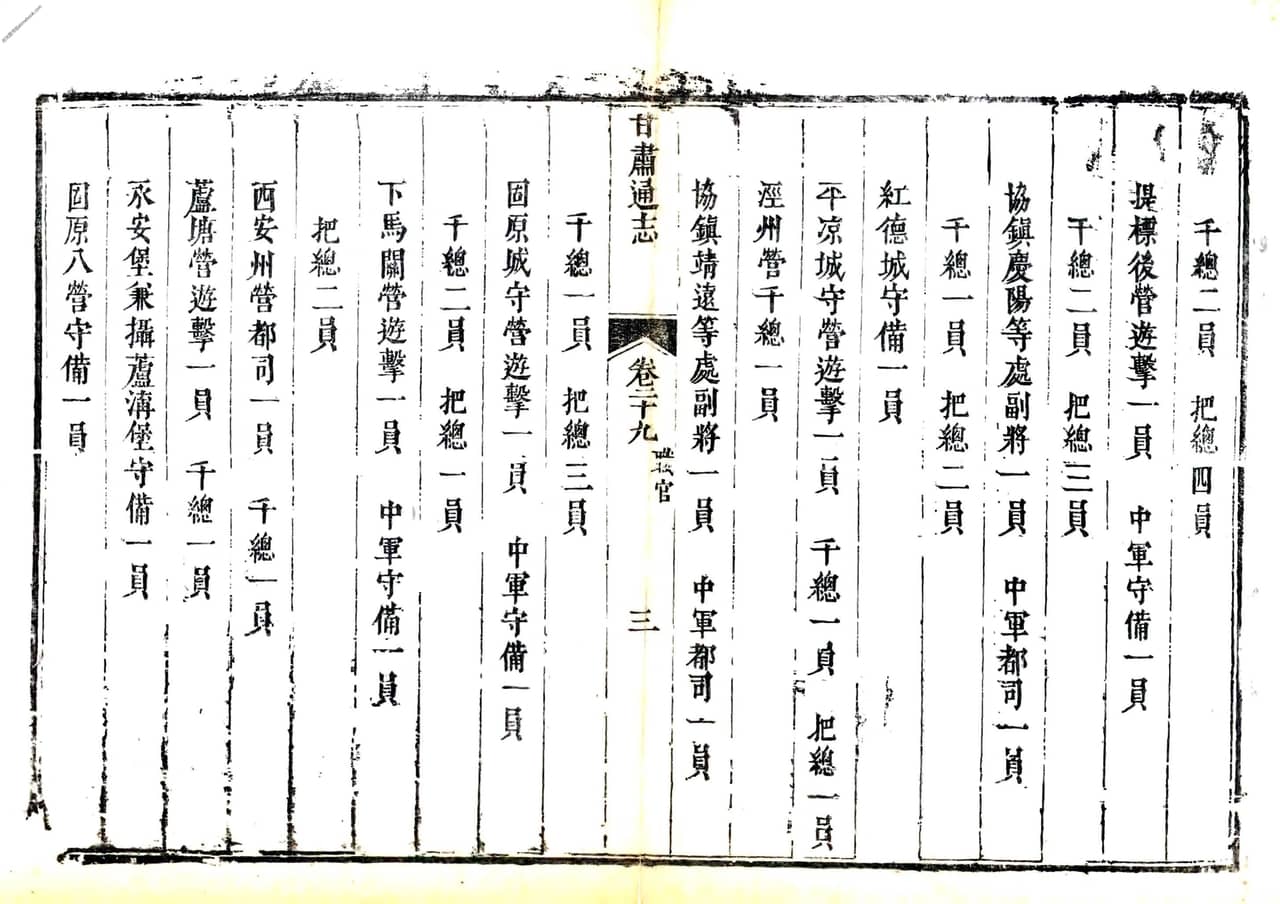 千總二員 把總四員
提標後營遊擊一員 中軍守備一員
千總二員 把總三員
協鎮慶陽等處副將一員 中軍都司一員
千總一員 把總二員
紅德城守備一員
平凉城守營遊擊一員 千總一員 把總一員
涇州營千總一員
協鎮靖遠等處副將一員 中軍都司一員
甘肅通志 卷二十九 職官 三
千總一員 把總三員
固原城守營遊擊一員 中軍守備一員
千總二員 把總一員
下馬關營遊擊一員 中軍守備一員
把總二員
西安州營都司一員 千總一員
蘆塘營遊擊一員 千總一員
永安堡兼攝蘆溝堡守備一員
固原八營守備一員